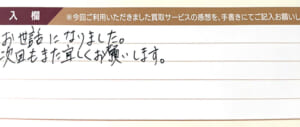 入欄
※今回ご利用いただきました買取サービスの感想を、手書きにてご記入お願いし
お世話になりました。
次回もまた宜しくお願いします。